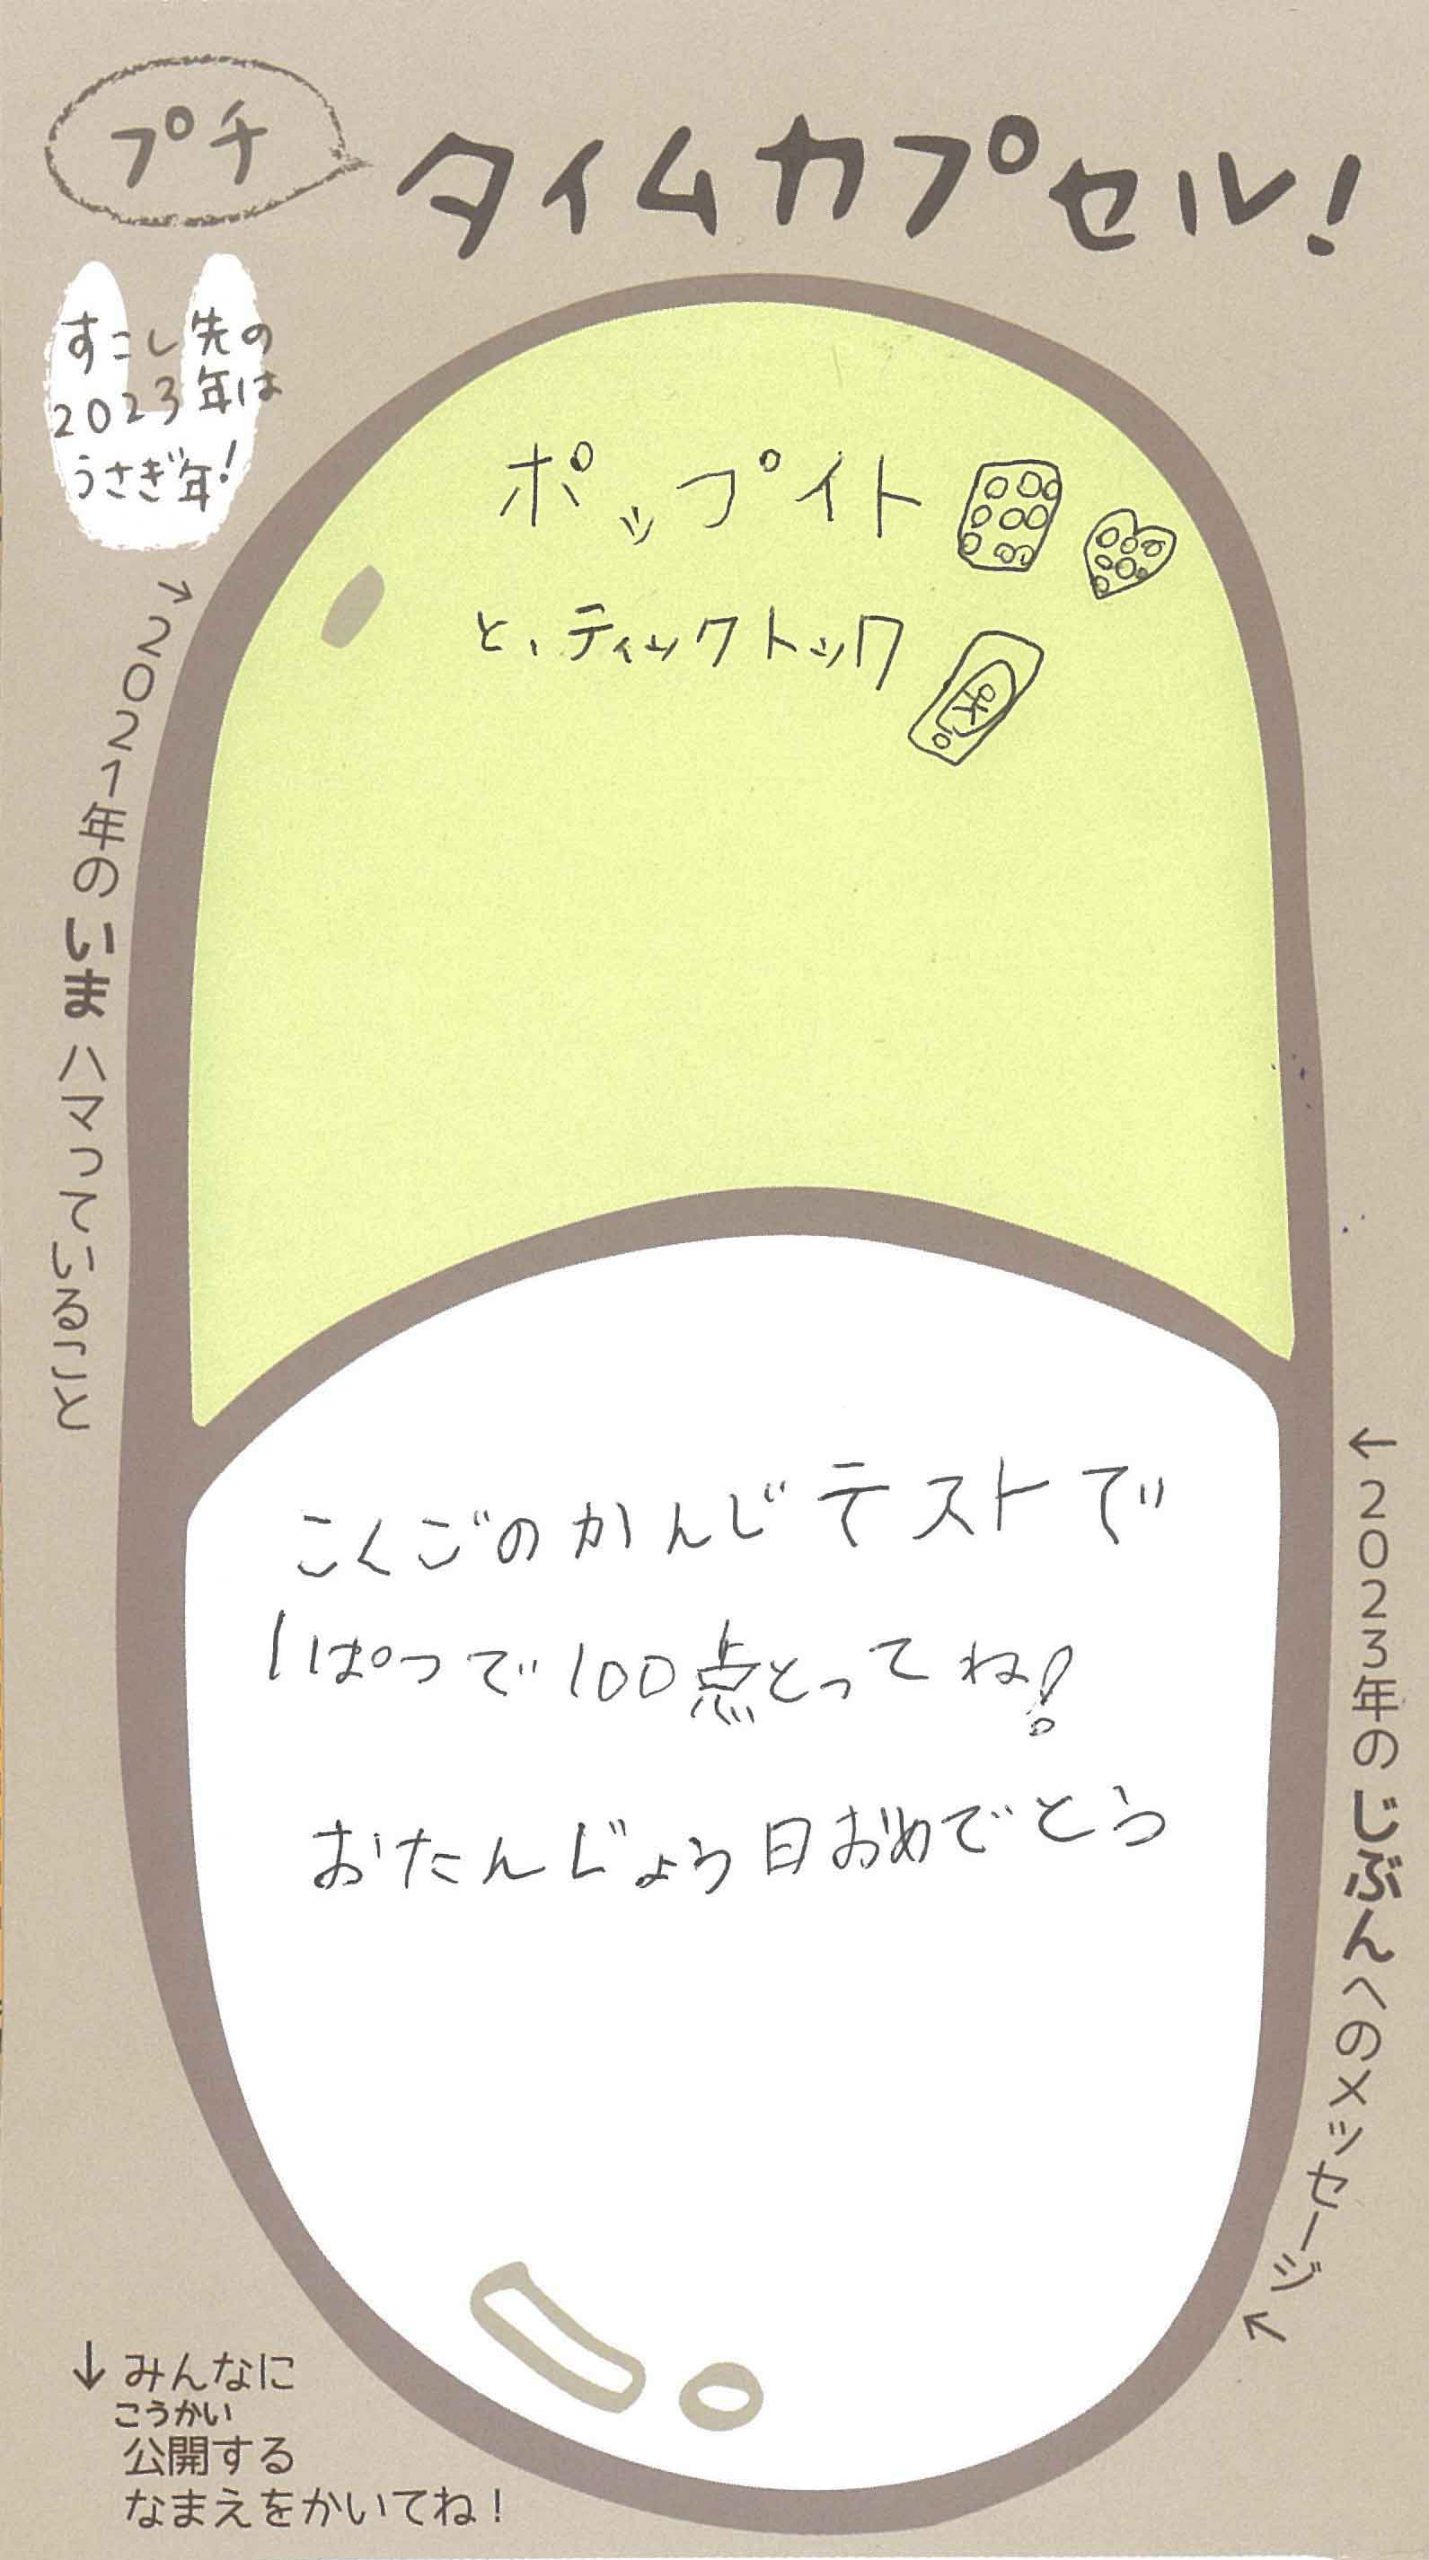 プチ
タイムカプセル！
すこし先の
2023年は
うさぎ年！
→2021年のいまハマっていること
ポップイト
と、ティックトック
OK
こくごのかんじテストで
1ぱつで100点とってね！
おたんじょう日おめでとう
←2023年のじぶんへのメッセージ
↓みんなに
こうかい
公開する
なまえをかいてね！